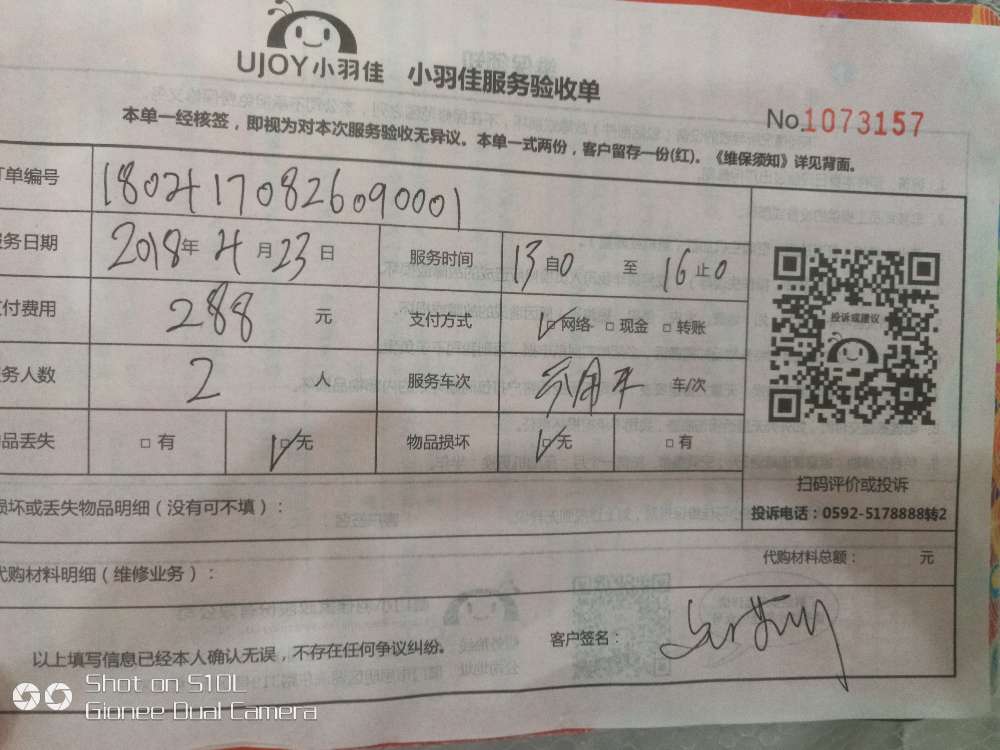 UJOY小羽佳 小羽佳服务验收单
No.1073157
本单一经核签，即视为对本次服务验收无异议。本单一式两份，客户留存一份(红)。《维保须知》详见背面。
订单编号 1804170826090001
服务日期 2018年4月23日 服务时间 13自0 至 16止0
支付费用 288 元 支付方式 □网络 □现金 □转账
服务人数 2 人 服务车次 车/次
物品丢失 □有 □无 物品损坏 □无 □有
投诉或建议
扫码评价或投诉
投诉电话：0592-5178888转2
损坏或丢失物品明细（没有可不填）：
代购材料明细（维修业务）：
代购材料总额： 元
以上填写信息已经本人确认无误，不存在任何争议纠纷。
客户签名：
Shot on S10L
Gionee Dual Camera